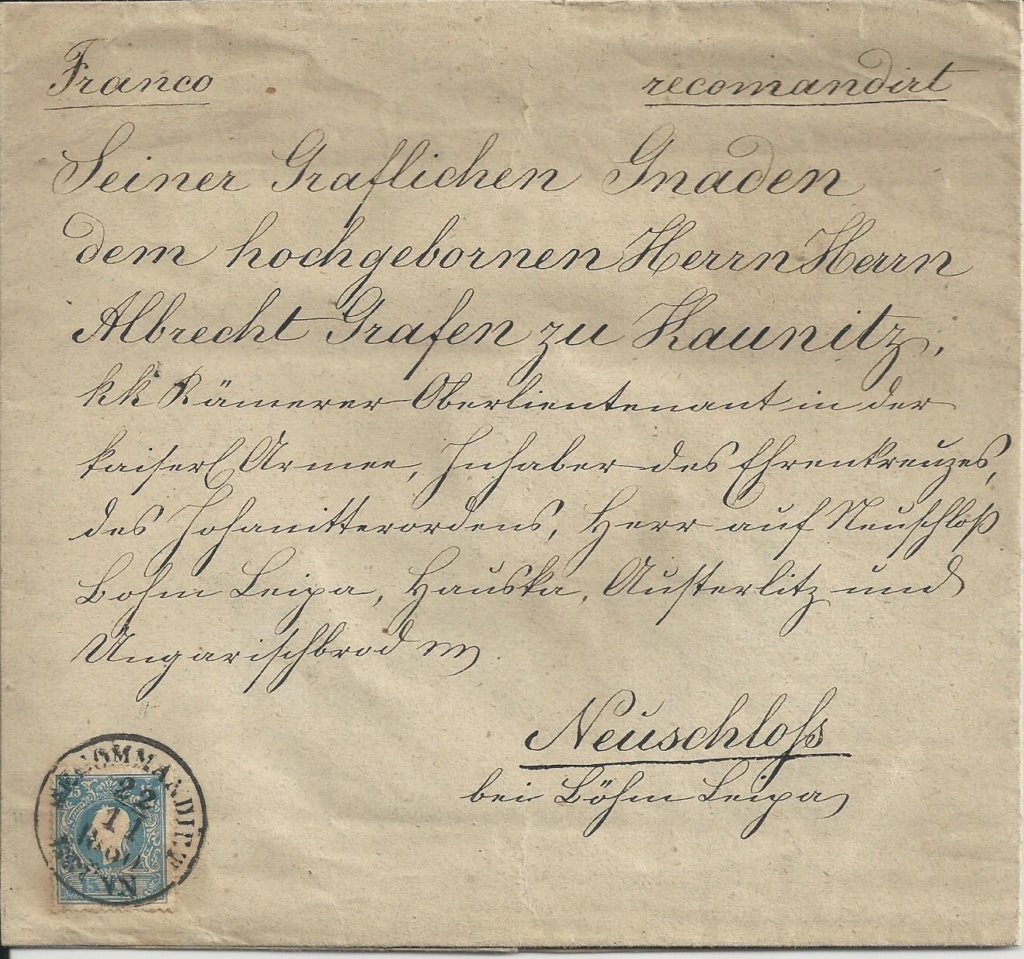 Franco recomandirt
Seiner Graflichen Gnaden
dem hochgebornen Herrn Herrn
Albrecht Grafen zu Kaunitz,
kk Kämerer Oberlieutenant in der
kaiserl Armee, Inhaber des Ehrenkreuzes,
des Johanitterordens, Herr auf Neuschloß
Böhm Leipa, Hauska, Austerlitz und
Ungarischbrod
Neuschloss
bei Böhm Leipa
RECOMMANDIRT
22
11
WIEN
15